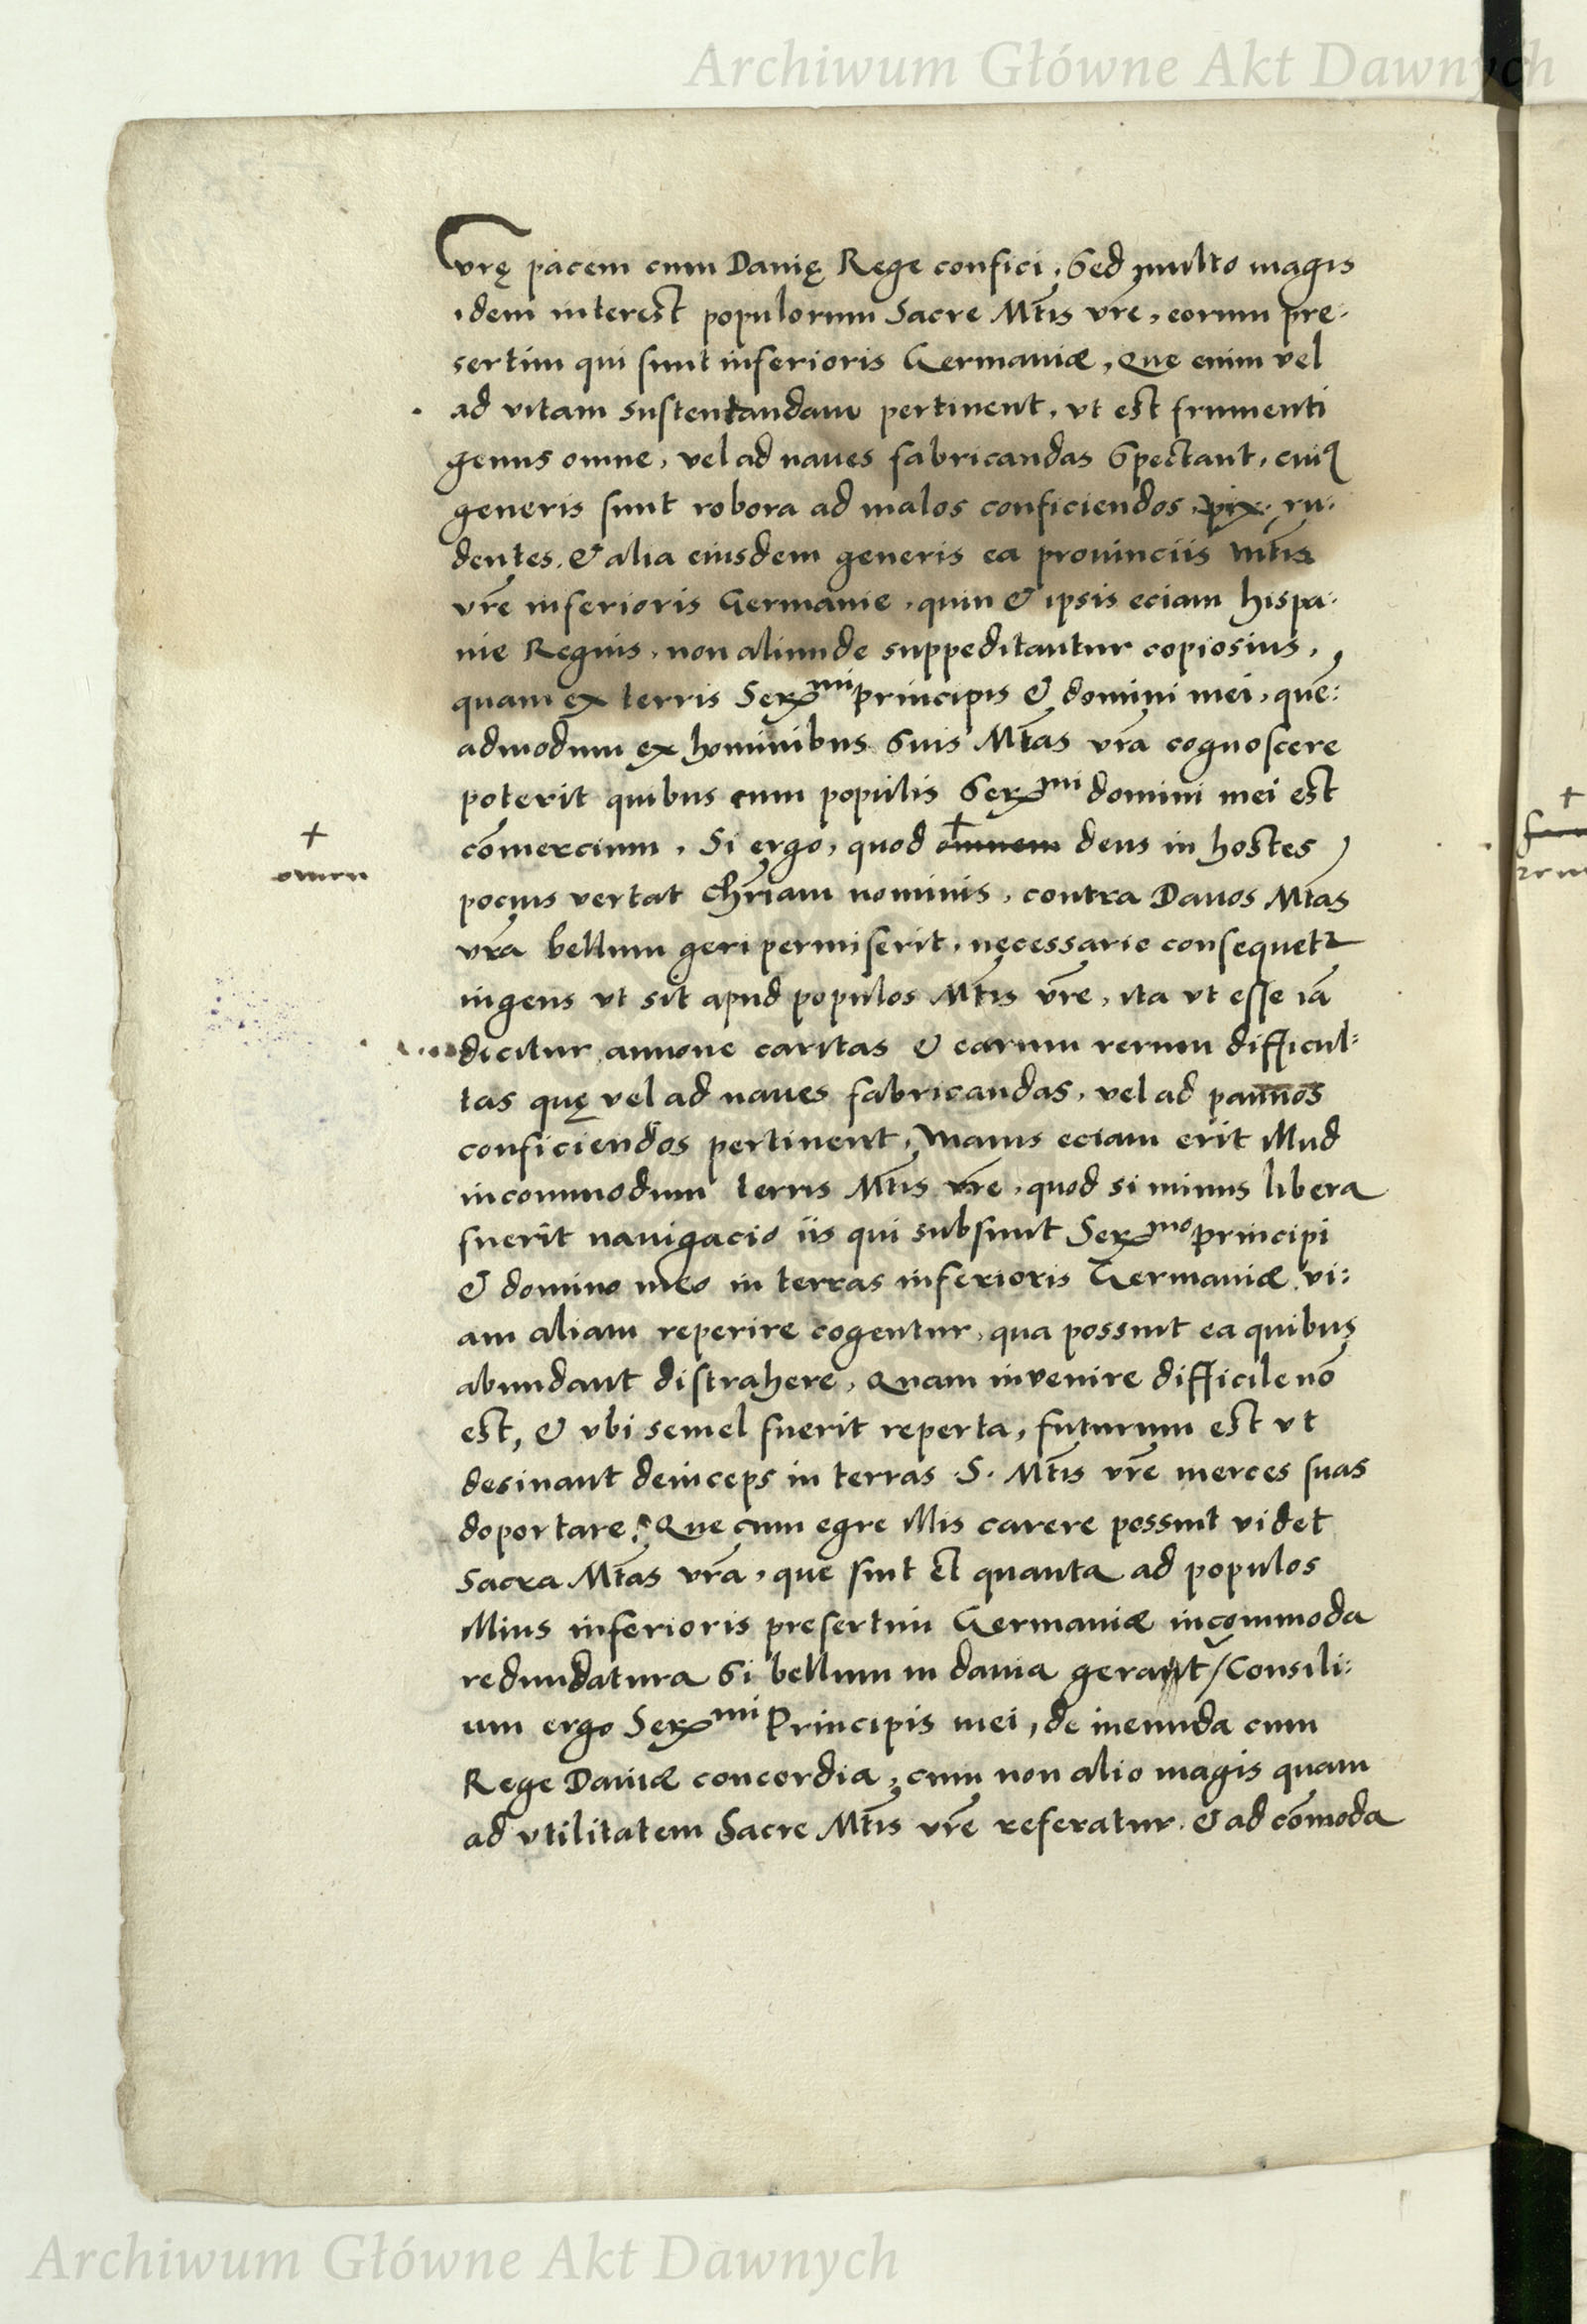 Archiwum Główne Akt Dawnych
vrę pacem cum Danię Rege confici, Sed multo magis
idem interest populorum Sacre Mtis vre, eorum pre-
sertim qui sunt inferioris Germaniæ, Que enim vel
ad vitam sustentandam pertinent, vt est frumenti
genus omne, vel ad naues fabricandas Spectant, cui9
generis sunt robora ad malos conficiendos, pix, ru-
dentes, & alia eiusdem generis ea prouinciis Mtis
vre inferioris Germanie, quin & ipsis eciam hispa-
nie Regnis, non aliunde suppeditantur copiosius,
quam ex terris Sermi principis & domini mei, quē:
admodum ex hominibus Suis Mtas vra cognoscere
poterit quibus cum populis Sermi domini mei est
cōmercium, Si ergo, quod + omnem deus in hostes
+
omen
pocius vertat Chriani nominis, contra Danos Mtas
vra bellum geri permiserit, necessario consequetr
ingens vt sit apud populos Mtis vre, ita vt esse iā
dicitur, annone caritas & earum rerum difficul=
tas quę vel ad naues fabricandas, vel ad pannos
conficiendos pertinent, Maius eciam erit illud
incommodum terris Mtis vre, quod si minus libera
fuerit nauigacio iis qui subsunt Sermo principi
& domino meo in terras inferioris Germaniæ, vi:
am aliam reperire cogentur, qua possint ea quibus
abundant distrahere, Quam invenire difficile nō
est, & vbi semel fuerit reperta, futurum est vt
desinant deinceps in terras S. Mtis vre merces suas
doportare, Que cum egre illis carere possint videt
Sacra Mtas vra, que sint et quanta ad populos
illius inferioris presertim Germaniæ incommoda
redundatura Si bellum in dania gerant / Consili:
um ergo Sermi Principis mei, de ineunda cum
Rege Daniæ concordia, cum non alio magis quam
ad vtilitatem Sacre Mtis vre referatur, & ad cōmoda
+
Archiwum Główne Akt Dawnych